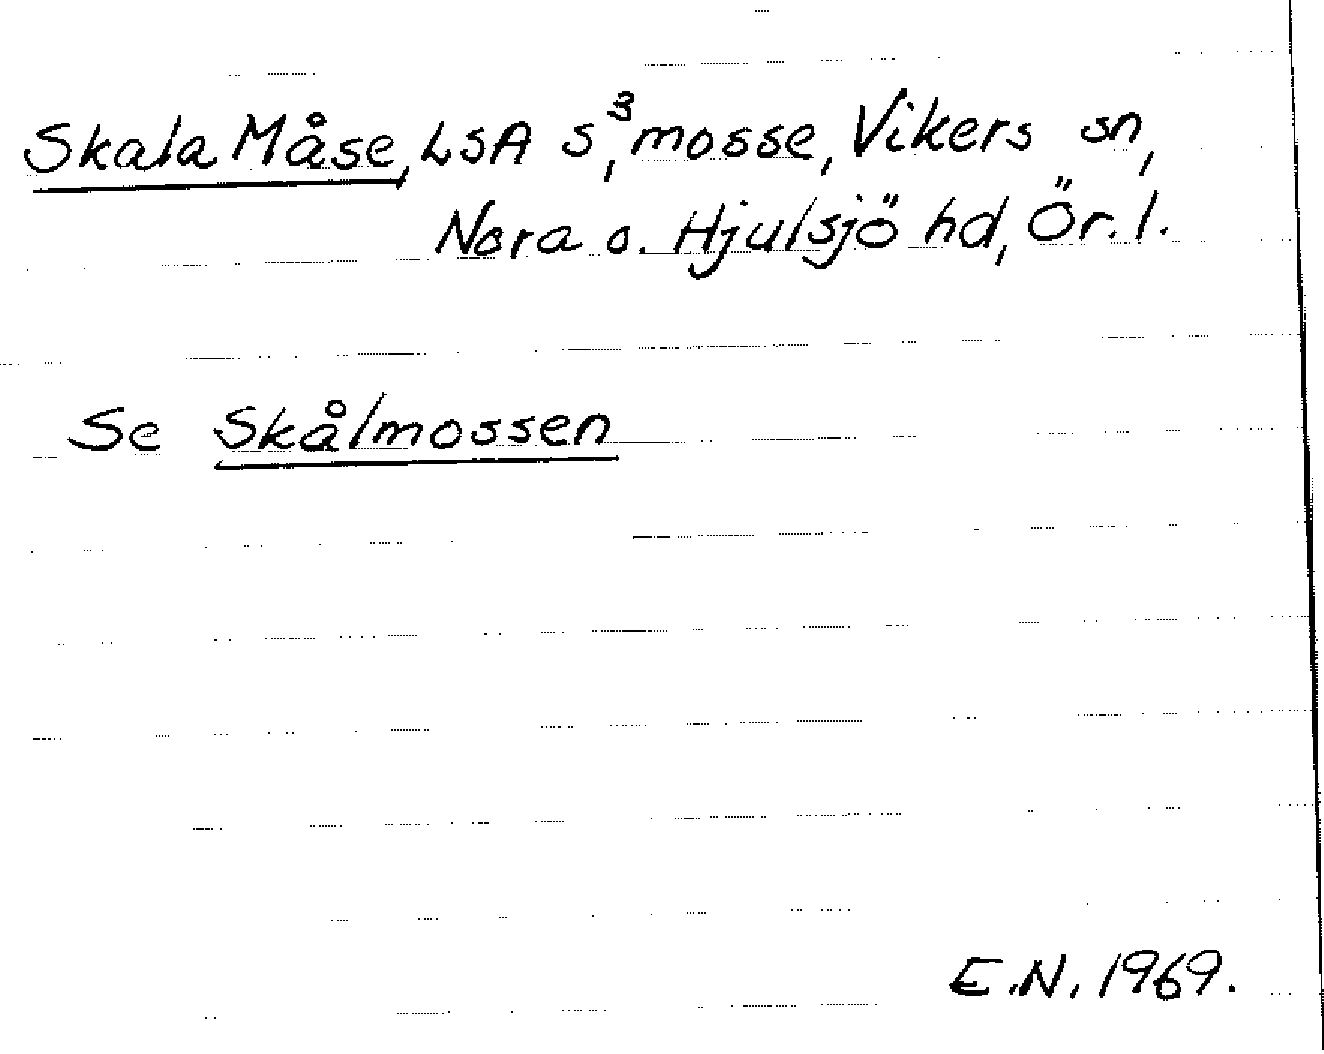 Skala Måse, LSA s³, mosse, Vikers sn,
Nora o. Hjulsjö hd, Ör. l.
Se Skålmossen
E.N. 1969.